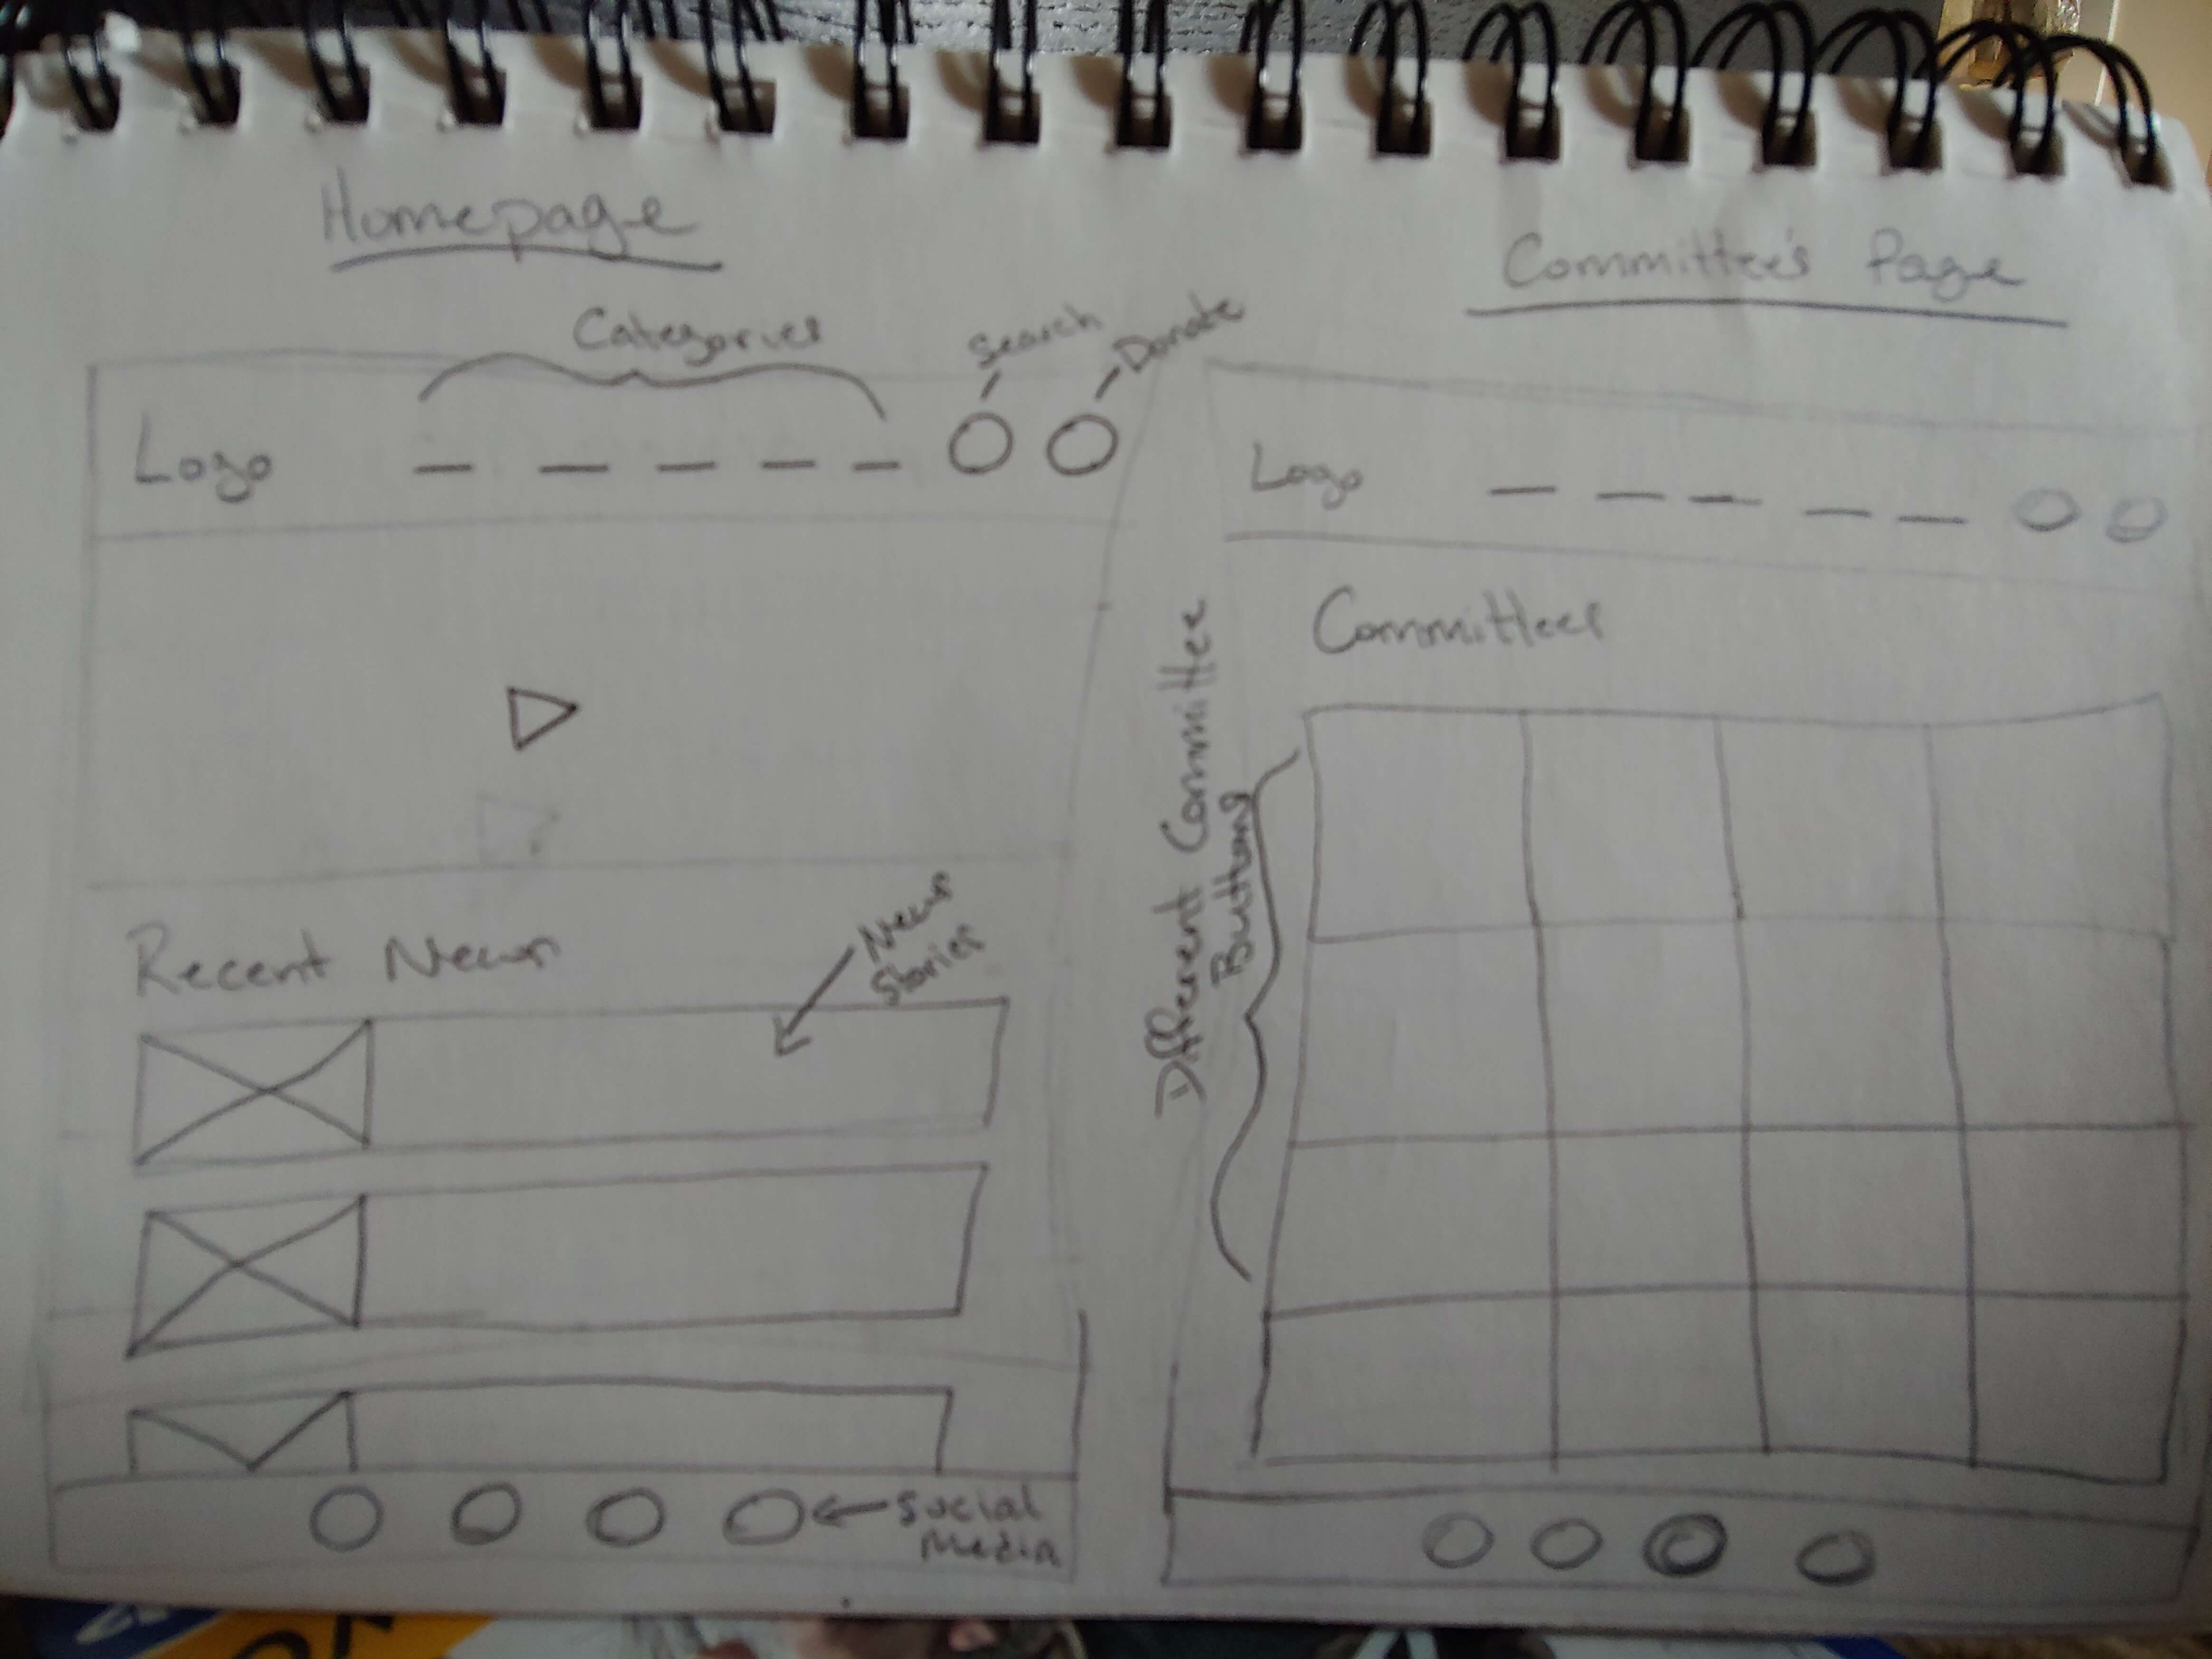 Homepage
Categories
Search
Donate
Logo
Recent News
News
Stories
Social
Media
Committee's Page
Logo
Committees
Different Committee
Buttons